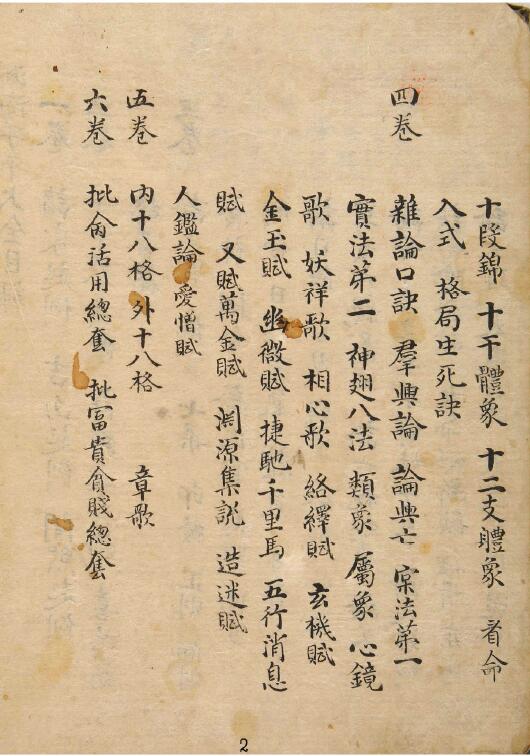 十段錦 十干體象 十二支體象 看命
入式 格局生死訣
四卷 雜論口訣 羣興論 論興亡 宲法第一
寶法第二 神趐八法 類象 屬象 心鏡
歌 妖祥歌 相心歌 絡繹賦 玄機賦
金玉賦 幽微賦 捷馳千里馬 五行消息
賦 又賦萬金賦 渊源集説 造迷賦
人鑑論 愛憎賦
五卷 内十八格 外十八格 章歌
六卷 批命活用總套 批冨貴貪賤總套
2